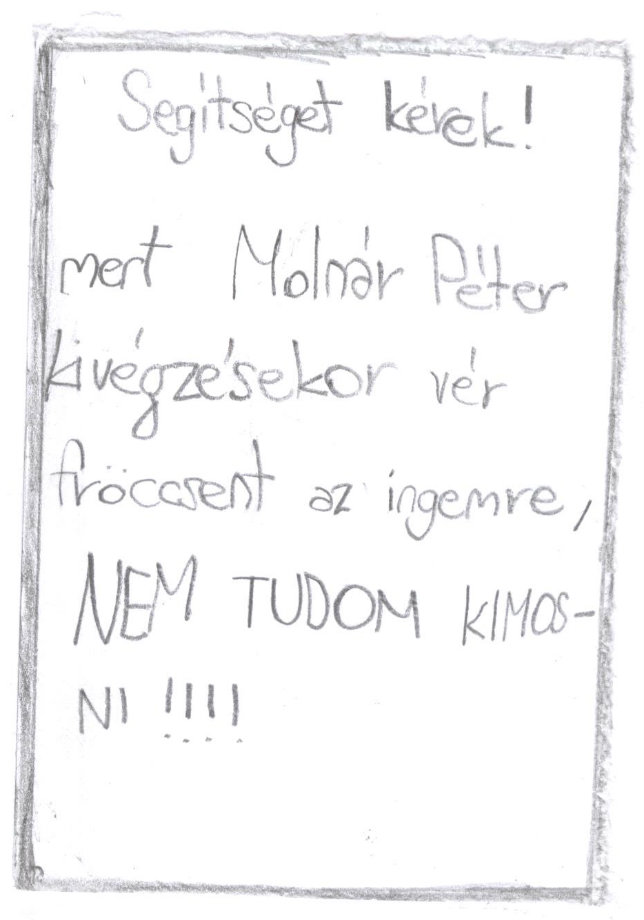 Segítséget kérek!
mert Molnár Péter
kivégzésekor vér
fröccsent az ingemre,
NEM TUDOM KIMOS-
NI !!!!